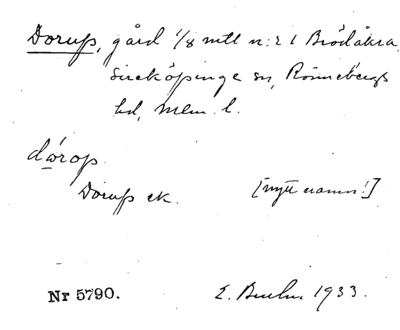 Dorup, gård 1/8 mtl n:r 1 Brödåkra,
Sireköpinge sn, Rönnebergs
hd, Mlm. l.
dårop
Dorup ek. [nytt namn!]
Nr 5790.
E. 1933.